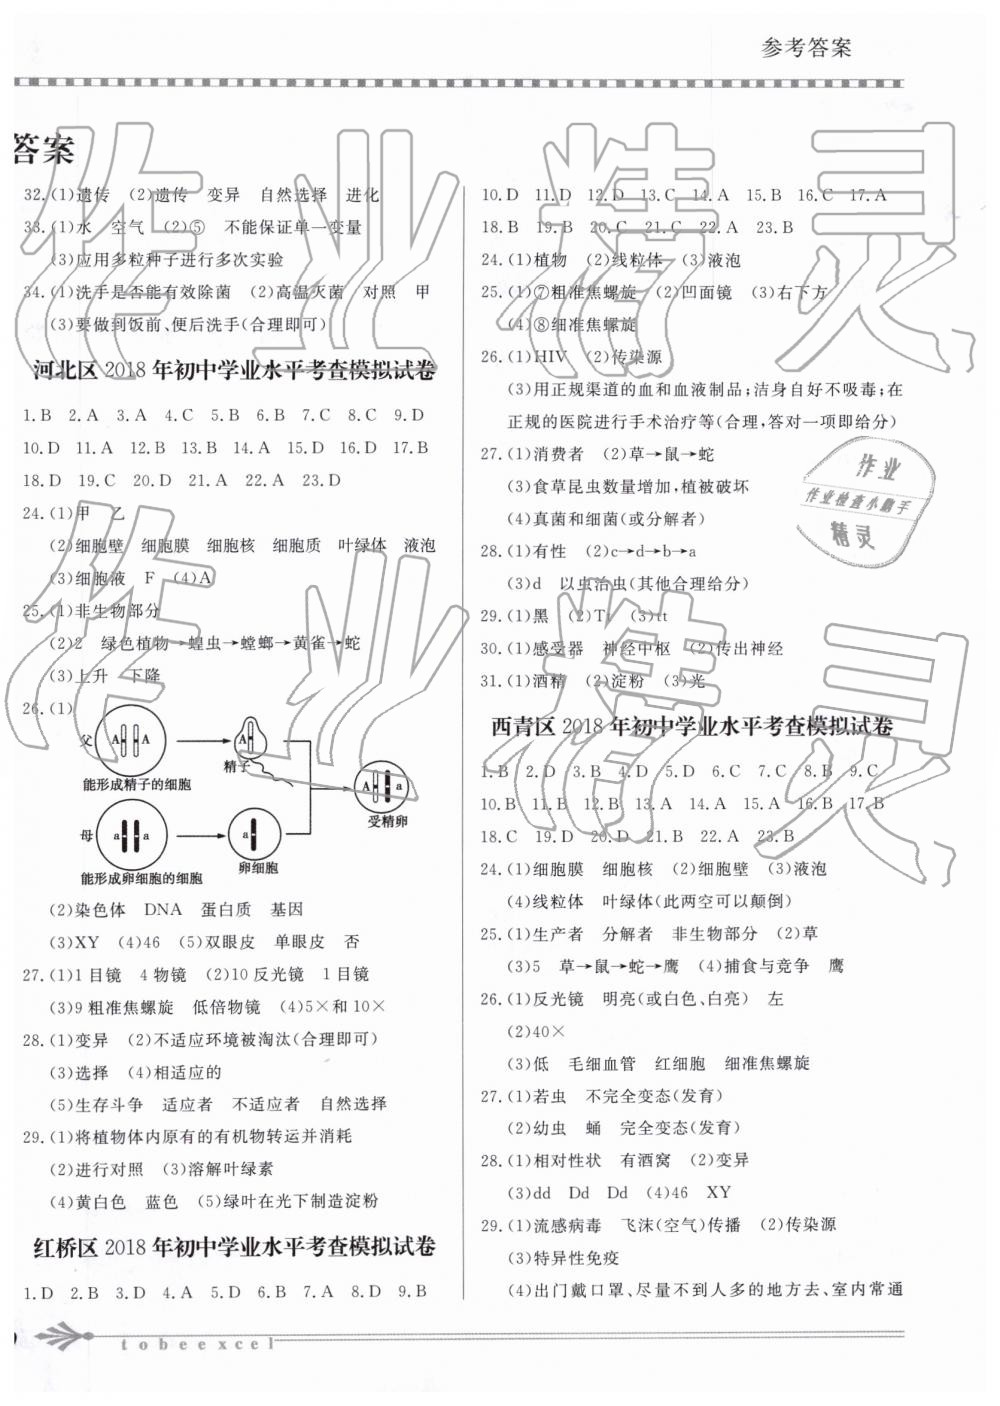 参考答案
答案
32.(1)遗传 (2)遗传 变异 自然选择 进化
33.(1)水 空气 (2)⑤ 不能保证单一变量
(3)应用多粒种子进行多次实验
34.(1)洗手是否能有效除菌 (2)高温灭菌 对照 甲
(3)要做到饭前、便后洗手(合理即可)
河北区 2018 年初中学业水平考查模拟试卷
1.B 2.A 3.A 4.C 5.B 6.B 7.C 8.C 9.D
10.D 11.A 12.B 13.B 14.A 15.D 16.D 17.B
18.D 19.C 20.D 21.A 22.A 23.D
24.(1)甲 乙
(2)细胞壁 细胞膜 细胞核 细胞质 叶绿体 液泡
(3)细胞液 F (4)A
25.(1)非生物部分
(2)2 绿色植物→蝗虫→螳螂→黄雀→蛇
(3)上升 下降
26.(1)
父 A A
A
精子
能形成精子的细胞
A a
受精卵
母 a a
a
卵细胞
能形成卵细胞的细胞
(2)染色体 DNA 蛋白质 基因
(3)XY (4)46 (5)双眼皮 单眼皮 否
27.(1)1目镜 4物镜 (2)10反光镜 1目镜
(3)9粗准焦螺旋 低倍物镜 (4)5×和10×
28.(1)变异 (2)不适应环境被淘汰(合理即可)
(3)选择 (4)相适应的
(5)生存斗争 适应者 不适应者 自然选择
29.(1)将植物体内原有的有机物转运并消耗
(2)进行对照 (3)溶解叶绿素
(4)黄白色 蓝色 (5)绿叶在光下制造淀粉
红桥区 2018 年初中学业水平考查模拟试卷
1.D 2.B 3.D 4.A 5.D 6.B 7.A 8.D 9.B
10.D 11.D 12.D 13.C 14.A 15.B 16.C 17.A
18.B 19.B 20.C 21.C 22.A 23.B
24.(1)植物 (2)线粒体 (3)液泡
25.(1)⑦粗准焦螺旋 (2)凹面镜 (3)右下方
(4)⑧细准焦螺旋
26.(1)HIV (2)传染源
(3)用正规渠道的血和血液制品;洁身自好不吸毒;在
正规的医院进行手术治疗等(合理,答对一项即给分)
27.(1)消费者 (2)草→鼠→蛇
(3)食草昆虫数量增加,植被破坏
(4)真菌和细菌(或分解者)
28.(1)有性 (2)c→d→b→a
(3)d 以虫治虫(其他合理给分)
29.(1)黑 (2)Tt (3)tt
30.(1)感受器 神经中枢 (2)传出神经
31.(1)酒精 (2)淀粉 (3)光
西青区 2018 年初中学业水平考查模拟试卷
1.B 2.D 3.B 4.D 5.D 6.C 7.C 8.B 9.C
10.B 11.B 12.B 13.A 14.A 15.A 16.B 17.B
18.C 19.D 20.D 21.B 22.A 23.B
24.(1)细胞膜 细胞核 (2)细胞壁 (3)液泡
(4)线粒体 叶绿体(此两空可以颠倒)
25.(1)生产者 分解者 非生物部分 (2)草
(3)5 草→鼠→蛇→鹰 (4)捕食与竞争 鹰
26.(1)反光镜 明亮(或白色、白亮) 左
(2)40×
(3)低 毛细血管 红细胞 细准焦螺旋
27.(1)若虫 不完全变态(发育)
(2)幼虫 蛹 完全变态(发育)
28.(1)相对性状 有酒窝 (2)变异
(3)dd Dd Dd (4)46 XY
29.(1)流感病毒 飞沫(空气)传播 (2)传染源
(3)特异性免疫
(4)出门戴口罩、尽量不到人多的地方去、室内常通
tobeexcel
作业精灵
作业精灵
作业
作业检查小助手
精灵